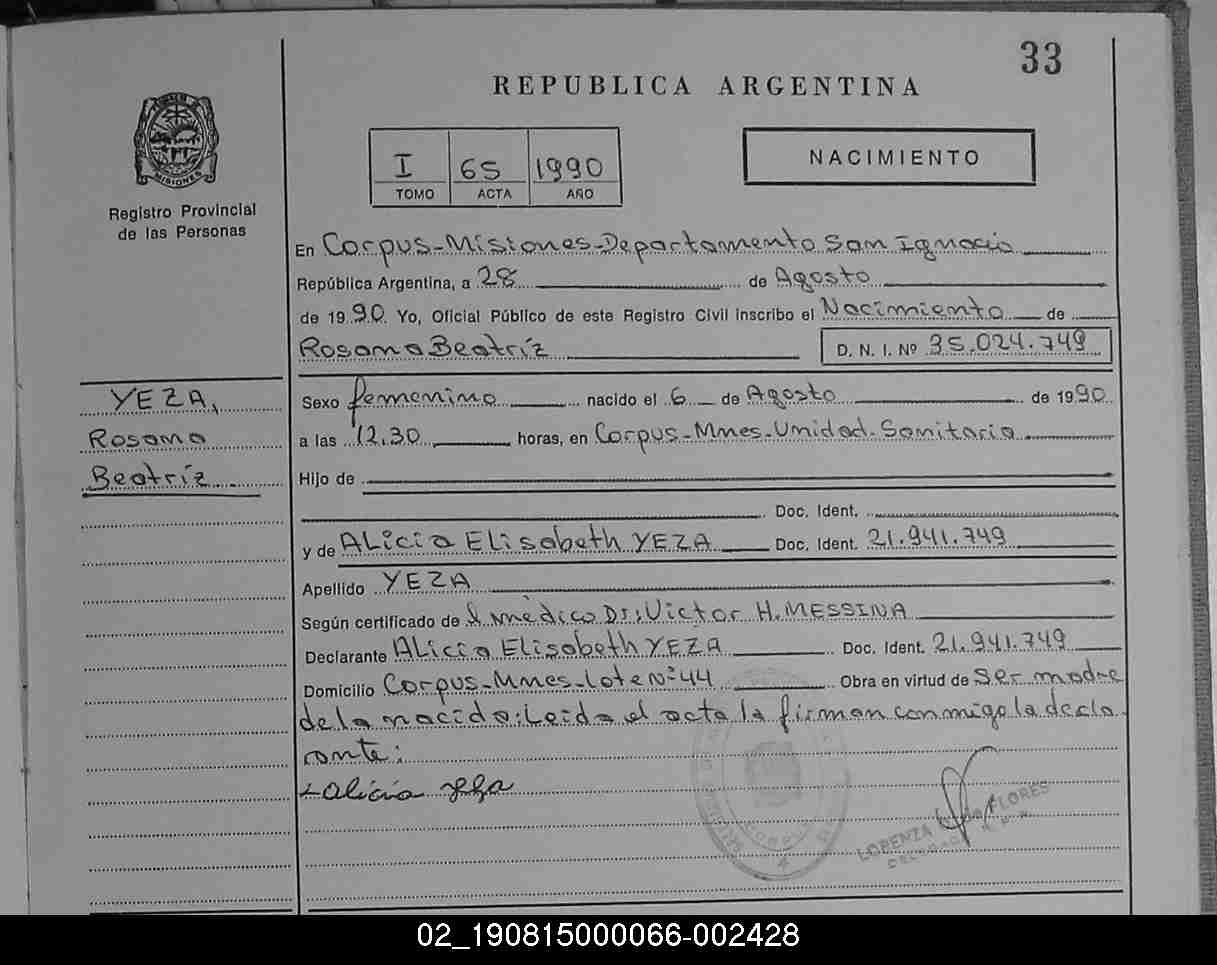 33
REPUBLICA ARGENTINA
MISIONES
Registro Provincial
de las Personas
I 65 1990
TOMO ACTA AÑO
NACIMIENTO
En Corpus-Misiones-Departamento San Ignacio
República Argentina, a 28 de Agosto
de 1990. Yo, Oficial Público de este Registro Civil inscribo el Nacimiento de
Rosana Beatríz D. N. I. Nº 35.024.749
YEZA,
Rosana
Beatríz
Sexo femenino nacido el 6 de Agosto de 1990
a las 12,30 horas, en Corpus-Mnes-Unidad-Sanitaria
Hijo de
Doc. Ident.
y de ALicia ELisabeth YEZA Doc. Ident. 21.941.749
Apellido YEZA
Según certificado de el médico Dr: Victor H. MESSINA
Declarante ALicia ELisabeth YEZA Doc. Ident. 21.941.749
Domicilio Corpus-Mnes-Lote Nº 44 Obra en virtud de ser madre
de la nacida: Leida el acta la firman conmigo la decla
rante:
alicia yeza
CORPUS
LORENZA FLORES
02_190815000066-002428